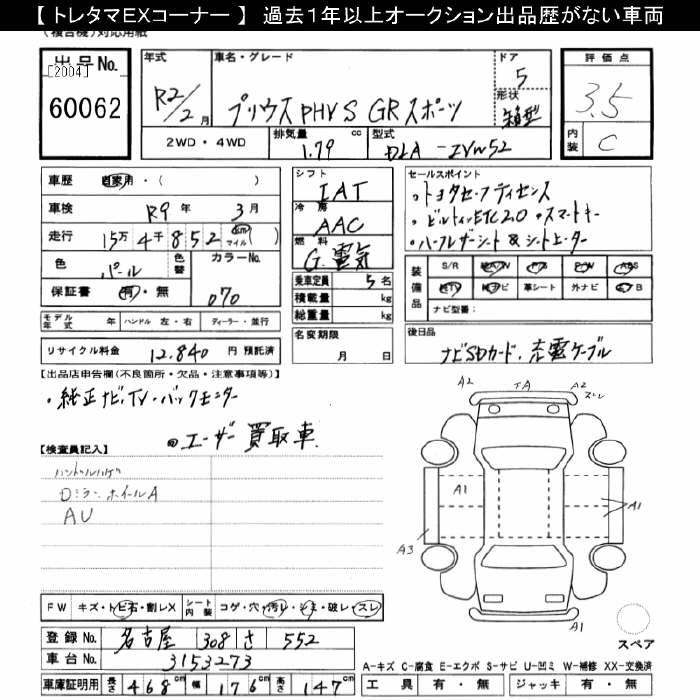 【 トレタマEXコーナー 】 過去1年以上オークション出品歴がない車両
（複合機）対応用紙
出品No.
[2004]
60062
年式
R2/2月
車名・グレード
プリウスPHV S GRスポーツ
ドア
5
形状
箱型
評価点
3.5
内装
C
2WD・4WD
排気量 cc
1.79
型式
DLA-ZVW52
車歴 自家用・( )
車検 R9年 3月
走行 15万4千852 km マイル ( )
色 パール
色替
カラーNo.
070
保証書 有・無
シフト
IAT
冷房
AAC
燃料
G.電気
乗車定員 5名
積載量 kg
総重量 kg
名変期限
月 日
セールスポイント
。トヨタセーフティセンス
。ビルトインETC2.0 。スマートキー
。ハーフレザーシート&シートヒーター
装備品
S/R AA/W P/S P/W ABS
(TV) ナビ 革シート 外ナビ エアB
ナビ型番:
モデル年式 年 ハンドル 左・右 ディーラー・並行
リサイクル料金 12,840 円 預託済
後日品
ナビSDカード、充電ケーブル
【出品店申告欄(不良箇所・欠品・注意事項等)】
・純正ナビ、TV・バックモニター
◎ユーザー買取車
【検査員記入】
ハンドルハゲ
Dミラー ホイールA
AU
A2 TA A2
ズレ
A1
A1
A3
A1
スペア
FW キズ・トビ石・割レX シート内装 コゲ・穴・汚レ・シミ・破レ・スレ
登録No. 名古屋 308 さ 552
車台No. 3153273
車庫証明用 長さ 468cm 幅 176cm 高さ 147cm
A-キズ C-腐食 E-エクボ S-サビ U-凹ミ W-補修 XX-交換済
工具 有・無 ジャッキ 有・無